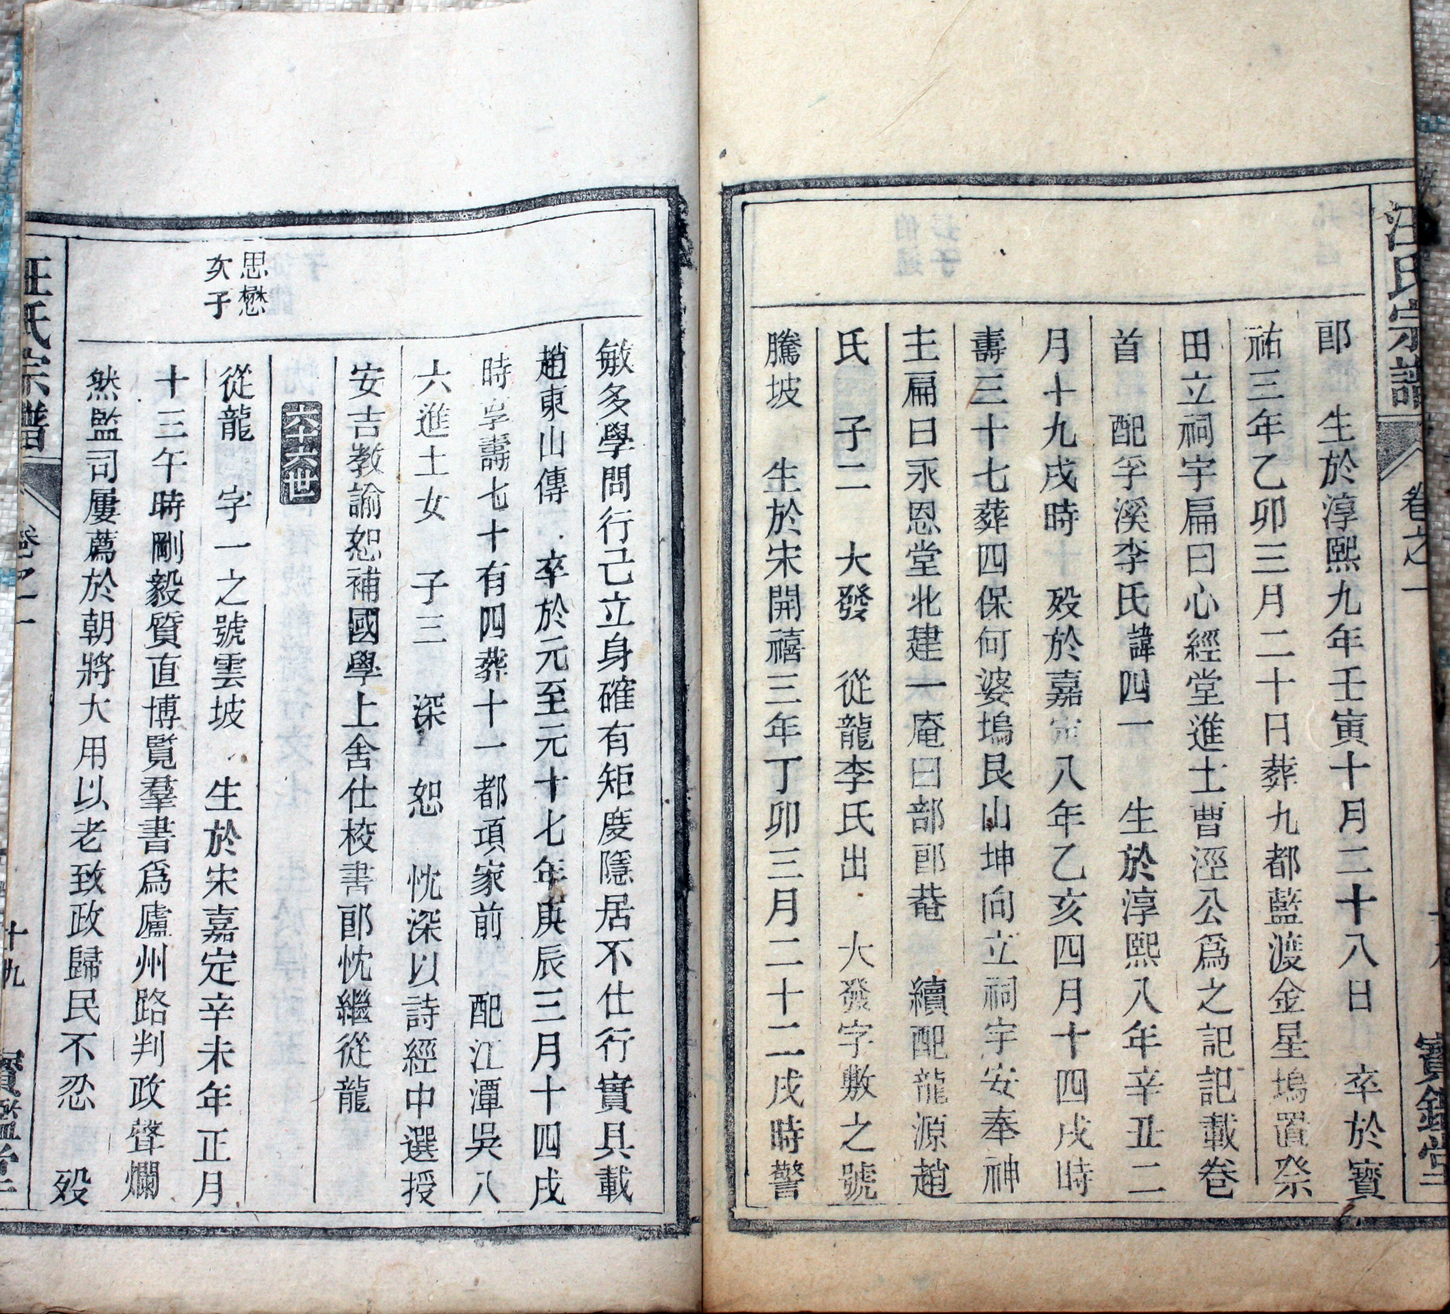 汪氏宗譜 卷之一 寶鑑堂
郎 生於淳熙九年壬寅十月二十八日 卒於寶
祐三年乙卯三月二十日葬九都藍渡金星塢置祭
田立祠宇扁曰心經堂進士曹涇公爲之記記載卷
首 配孚溪李氏諱四一 生於淳熙八年辛丑二
月十九戌時 歿於嘉定八年乙亥四月十四戌時
壽三十七葬四保何婆塢艮山坤向立祠宇安奉神
主扁曰永恩堂北建一庵曰部郎菴 續配龍源趙
氏 子二 大發 從龍李氏出 大發字敷之號
騰坡 生於宋開禧三年丁卯三月二十二戌時警
敏多學問行己立身確有矩度隱居不仕行實具載
趙東山傳 卒於元至元十七年庚辰三月十四戌
時享壽七十有四葬十一都項家前 配江潭吳八
六進士女 子三 深 恕 忱深以詩經中選授
安吉教諭恕補國學上舍仕校書郎忱繼從龍
六十六世
思懋
次子
從龍 字一之號雲坡 生於宋嘉定辛未年正月
十三午時剛毅質直博覽羣書爲廬州路判政聲爛
然監司屢薦於朝將大用以老致政歸民不忍 歿
汪氏宗譜 卷之一 十九 寶鑑堂